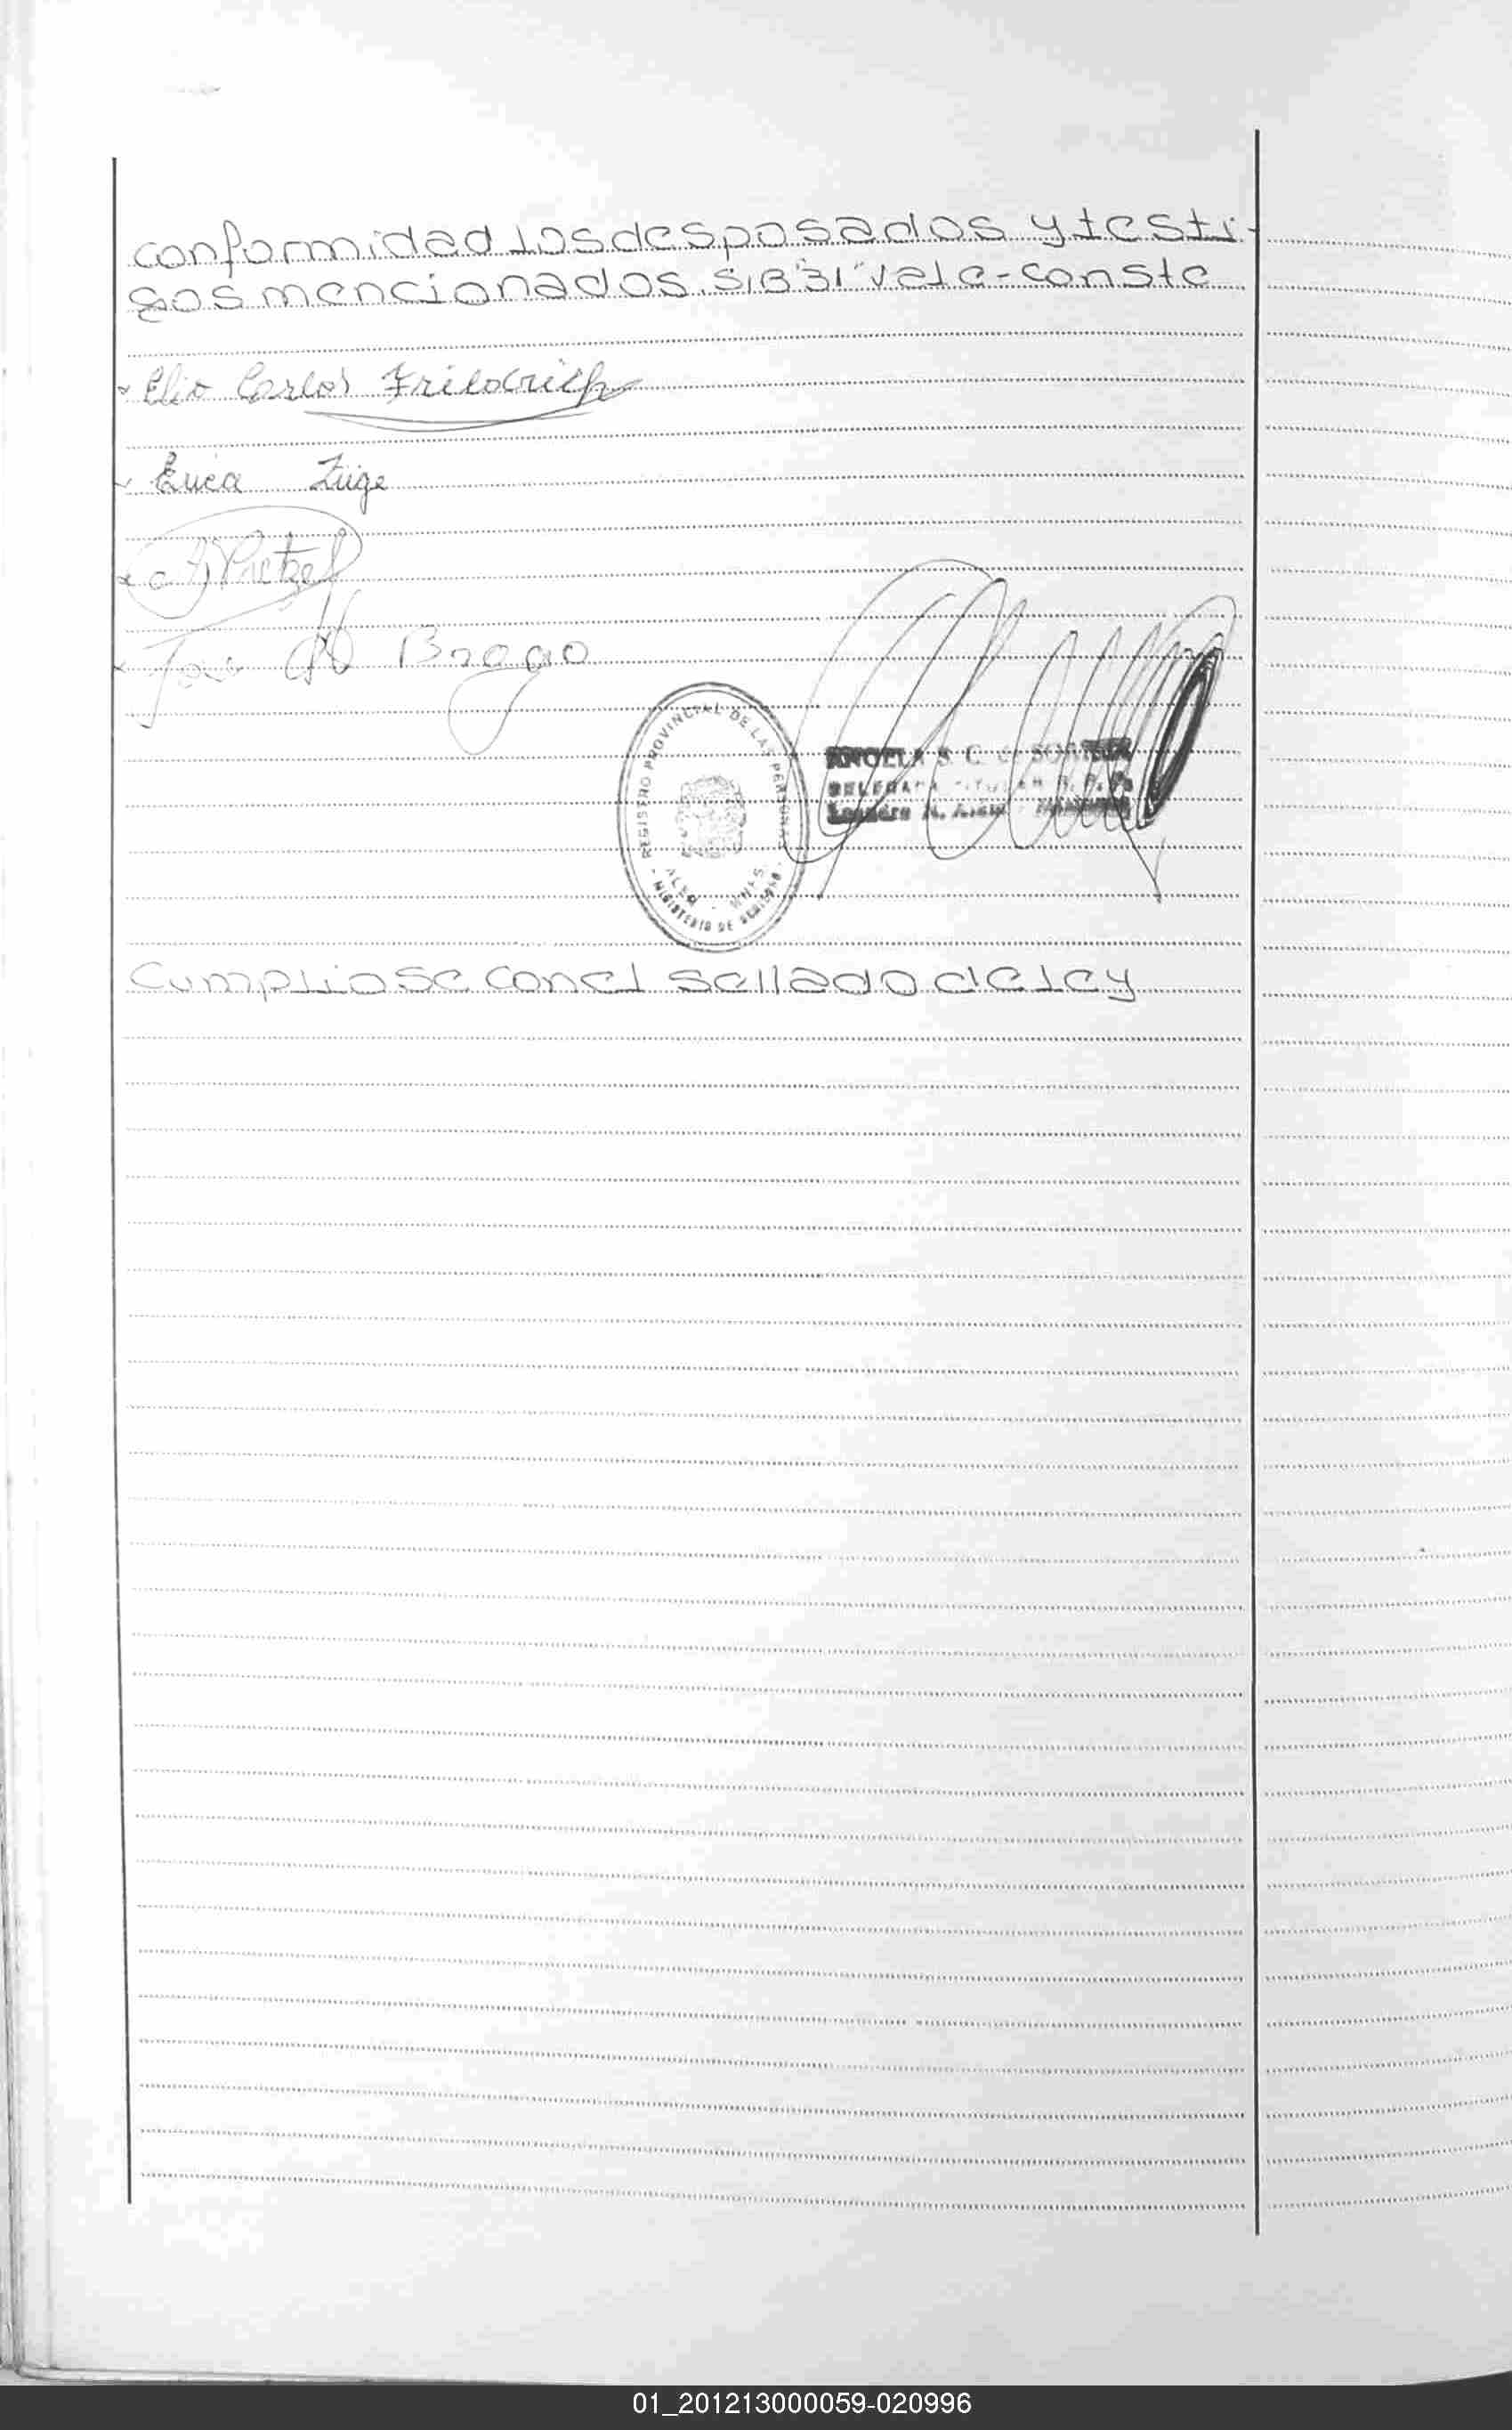 conformidad los desposados y testi-
gos mencionados. S/B "31" Vale-conste
Elio Carlos Friedrich
Erica Züge
José A Braga
REGISTRO PROVINCIAL DE LAS PERSONAS
ALEM - MNES.
MINISTERIO DE GOBIERNO
ANGELA S. C. de
DELEGADA TITULAR R. P. P.
Leandro N. Alem - Misiones
Cumpliose con el sellado de ley
01_201213000059-020996